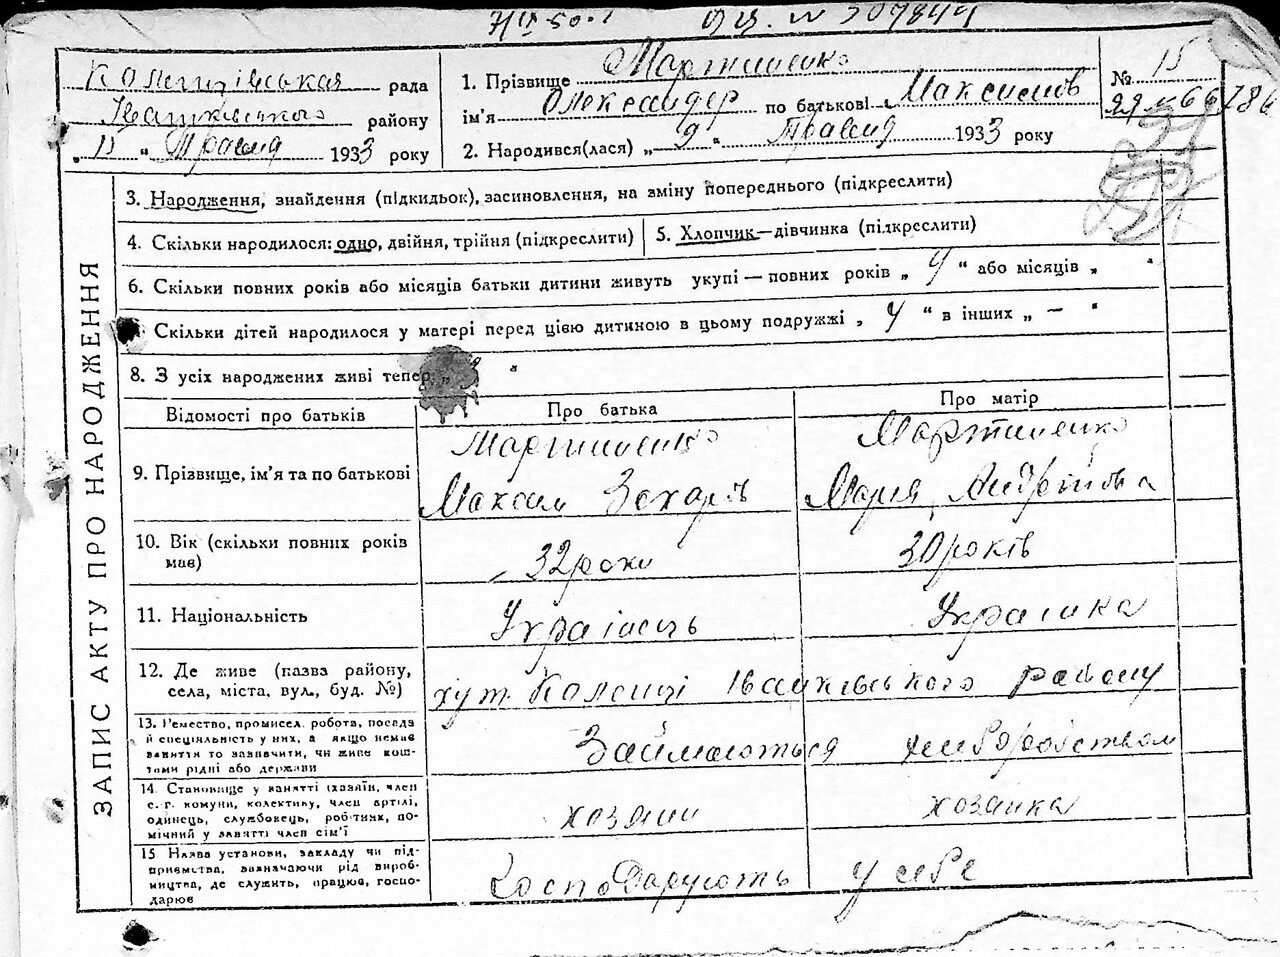 рада
району
„ 11 “ Травня 1933 року
1. Прізвище Мартиненко
ім'я Олександер по батькові Максимов
2. Народився(лася) „ 9 “ Травня 1933 року
№ 15
ЗАПИС АКТУ ПРО НАРОДЖЕННЯ
3. Народження, знайдення (підкидьок), засиновлення, на зміну попереднього (підкреслити)
4. Скільки народилося: одно, двійня, трійня (підкреслити)
5. Хлопчик—дівчинка (підкреслити)
6. Скільки повних років або місяців батьки дитини живуть укупі — повних років „ “ або місяців „ “
Скільки дітей народилося у матері перед цією дитиною в цьому подружжі „ “ в інших „ — “
8. З усіх народжених живі тепер „ “
Відомості про батьків
Про батька
Про матір
9. Прізвище, ім'я та по батькові
Мартиненко
Максим Захарів
Мартиненко
Мария Андріївна
10. Вік (скільки повних років
мав)
32 роки
30 років
11. Національність
Українець
Українка
12. Де живе (назва району,
села, міста, вул., буд. №)
хут. Іваньківського району
13. Ремество, промисел, робота, посада
й спеціяльність у них, а якщо немає
заняття то зазначити, чи живе кош-
тами рідні або держави
Займаються хліборобством
14. Становище у занятті (хазяїн, член
с.-г. комуни, колективу, член артілі,
одинець, службовець, робітник, по-
мічний у занятті член сім'ї
хозяин
хозяика
15 Назва установи, закладу чи під-
приємства, зазначаючи рід вироб-
ництва, де служить, працює, госпо-
дарює
Господарують у себе